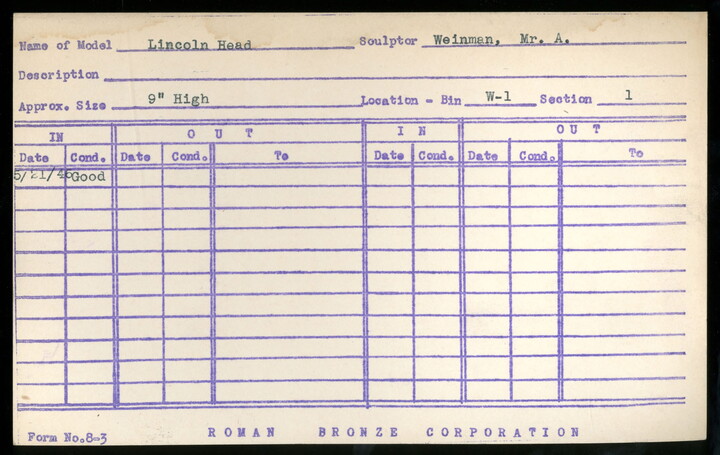 Name of Model Lincoln Head Sculptor Weinman, Mr. A.
Description
Approx. Size 9" High Location - Bin W-1 Section 1
IN OUT IN OUT
Date Cond. Date Cond. To Date Cond. Date Cond. To
5/21/46 Good
Form No.8-3 ROMAN BRONZE CORPORATION